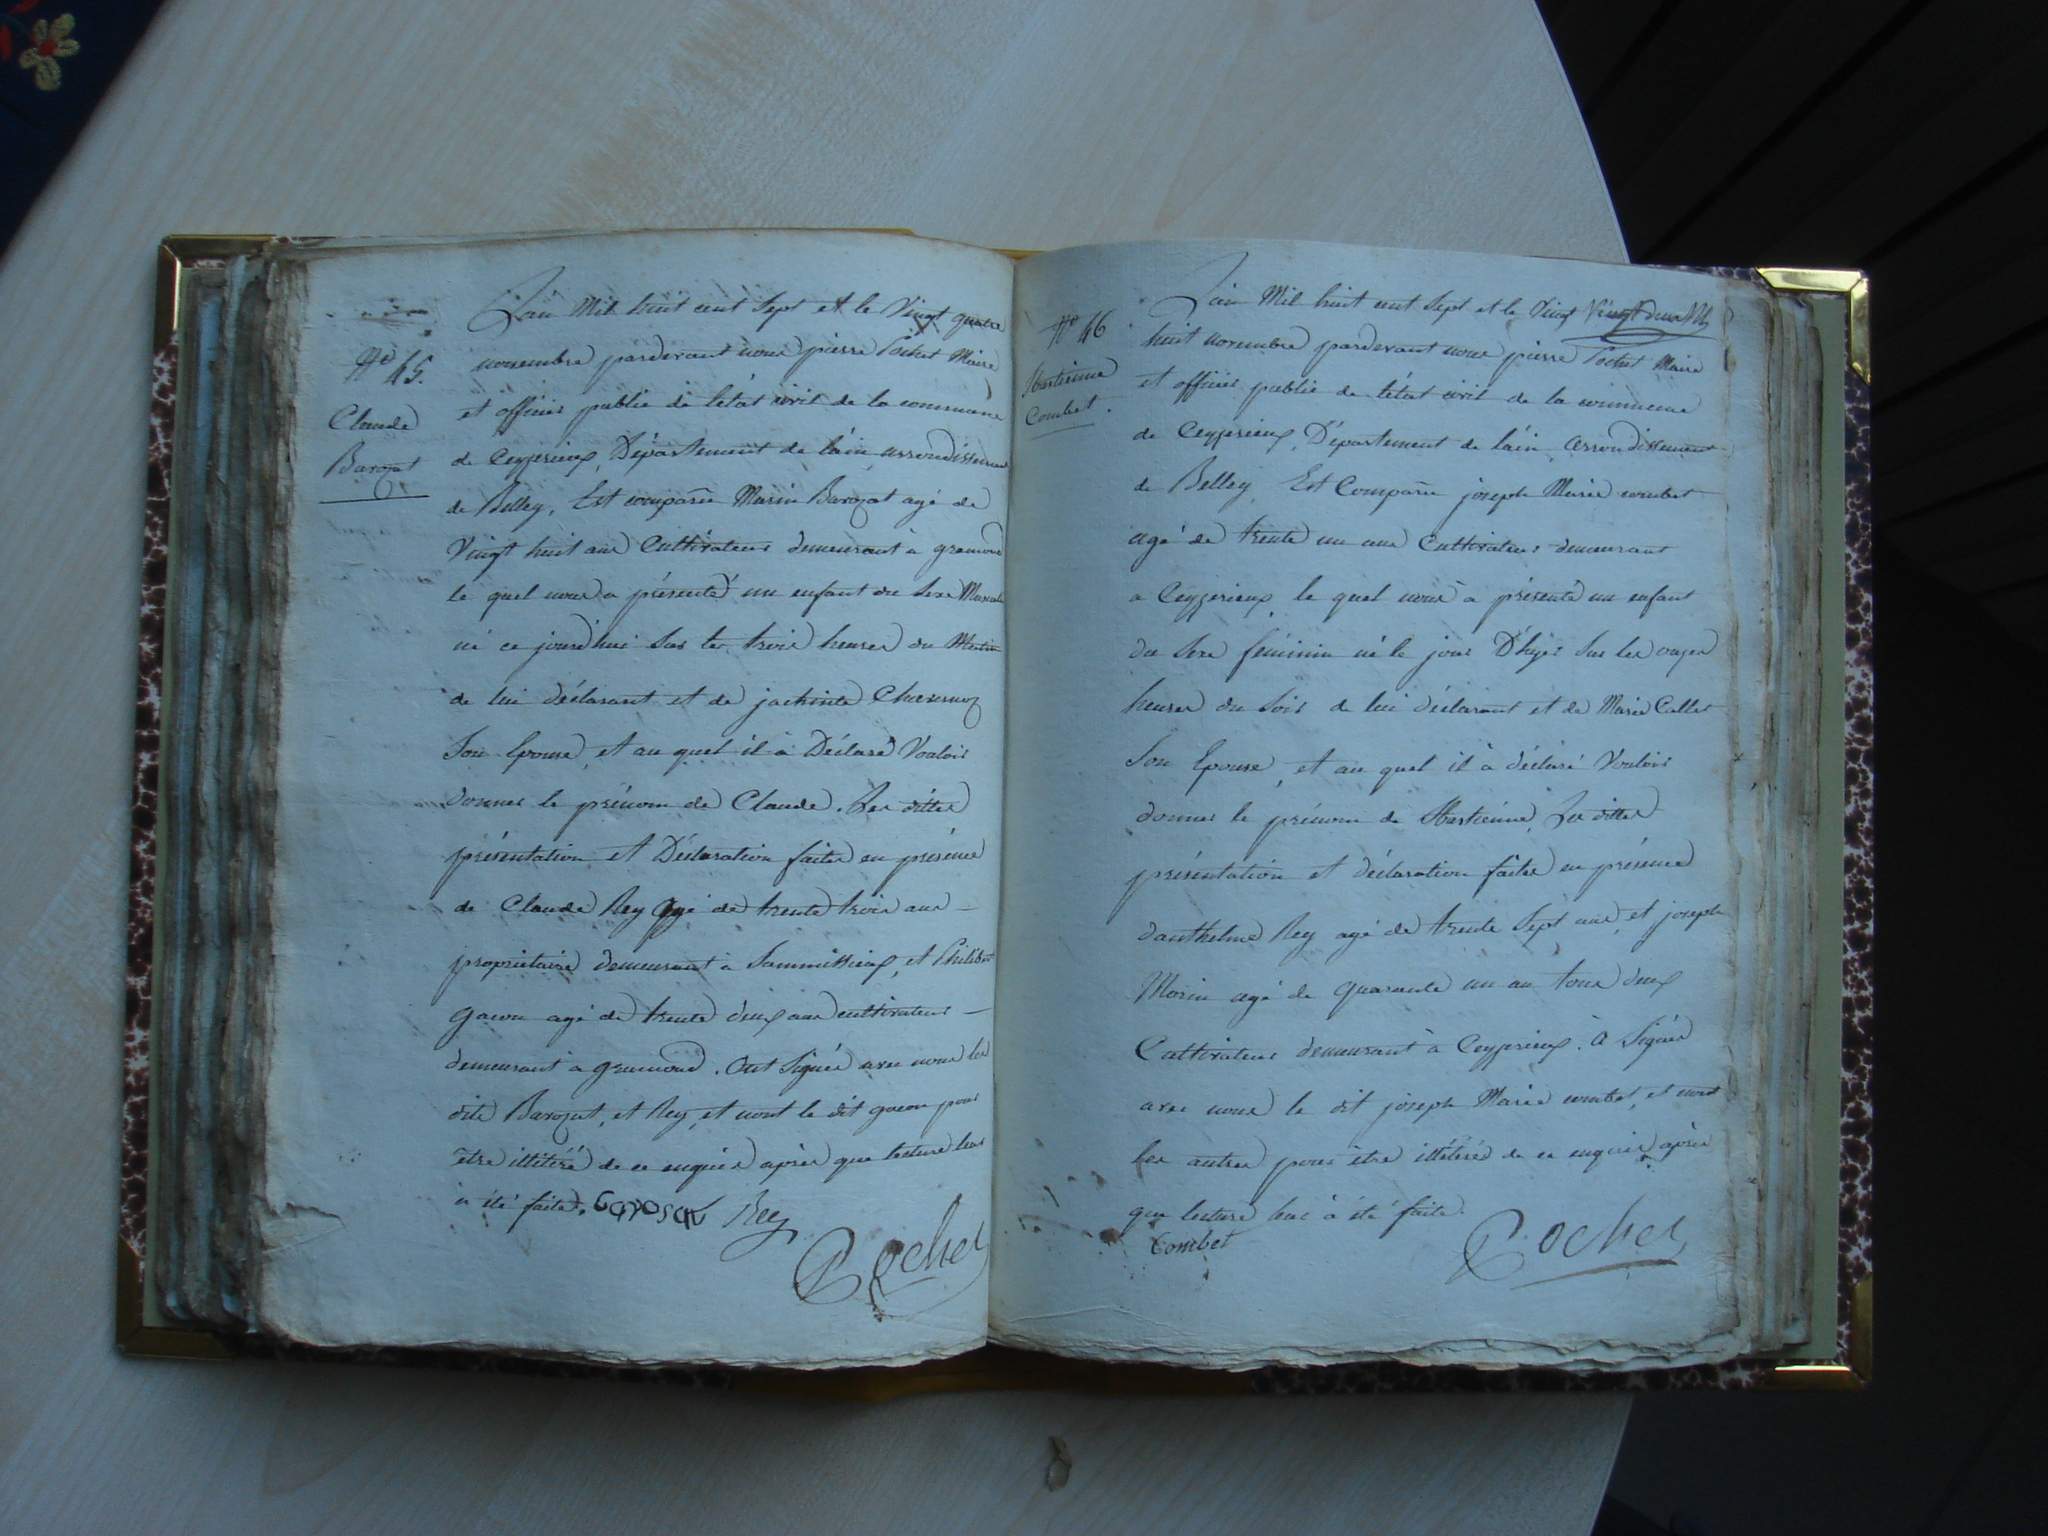 N.º 45.
Claude
Barozat
L'an Mil huit cent Sept et le Vingt quatre
novembre pardevant nous pierre Pochet Maire
et officier public de l'état civil de la commune
de Ceyzerieux, Département de l'ain, arrondissement
de Belley, Est comparu Marin Barozat agé de
Vingt huit ans Cultivateur demeurant à
le quel nous a présenté un enfant du Sexe Masculin
né ce jourd'hui Sur les trois heures du Matin
de lui déclarant et de jachinte
Son Epouse, et au quel il à Déclaré Vouloir
donner le prénom de Claude. Les dittes
présentation et Déclaration faites en présence
de Claude Rey agé de trente trois ans
propriétaire demeurant à et Philibert
gacon agé de trente deux ans cultivateur
demeurant à . Ont Signés avec nous les
dits Barozat, et Rey, et nont le dit gacon pour
être illitéré de ce enquis après que lecture leur
a été faite. Barosat Rey
Pochet
N.º 46
Combet.
L'an Mil huit cent Sept et le Vingt
huit novembre pardevant nous pierre Pochet Maire
et officier public de l'état civil de la commune
de Ceyzerieux, Département de l'ain, arrondissement
de Belley, Est Comparu joseph Marie combet
agé de trente un ans Cultivateur demeurant
a Ceyzerieux, le quel nous à présenté un enfant
du Sexe féminin né le jour D'hyer Sur les onzes
heures du Soir de lui déclarant et de Marie Callet
Son Epouse, et au quel il à déclaré Vouloir
donner le prénom de Les dittes
présentation et déclaration faites en présence
danthelme Rey agé de trente Sept ans, et joseph
Morin agé de quarante un an tous deux
Cultivateurs demeurant à Ceyzerieux. à Signés
avec nous le dit joseph Marie combet, et nont
les autres pour être illétérés de ce enquis après
que lecture leur à été faite.
Combet Pochet